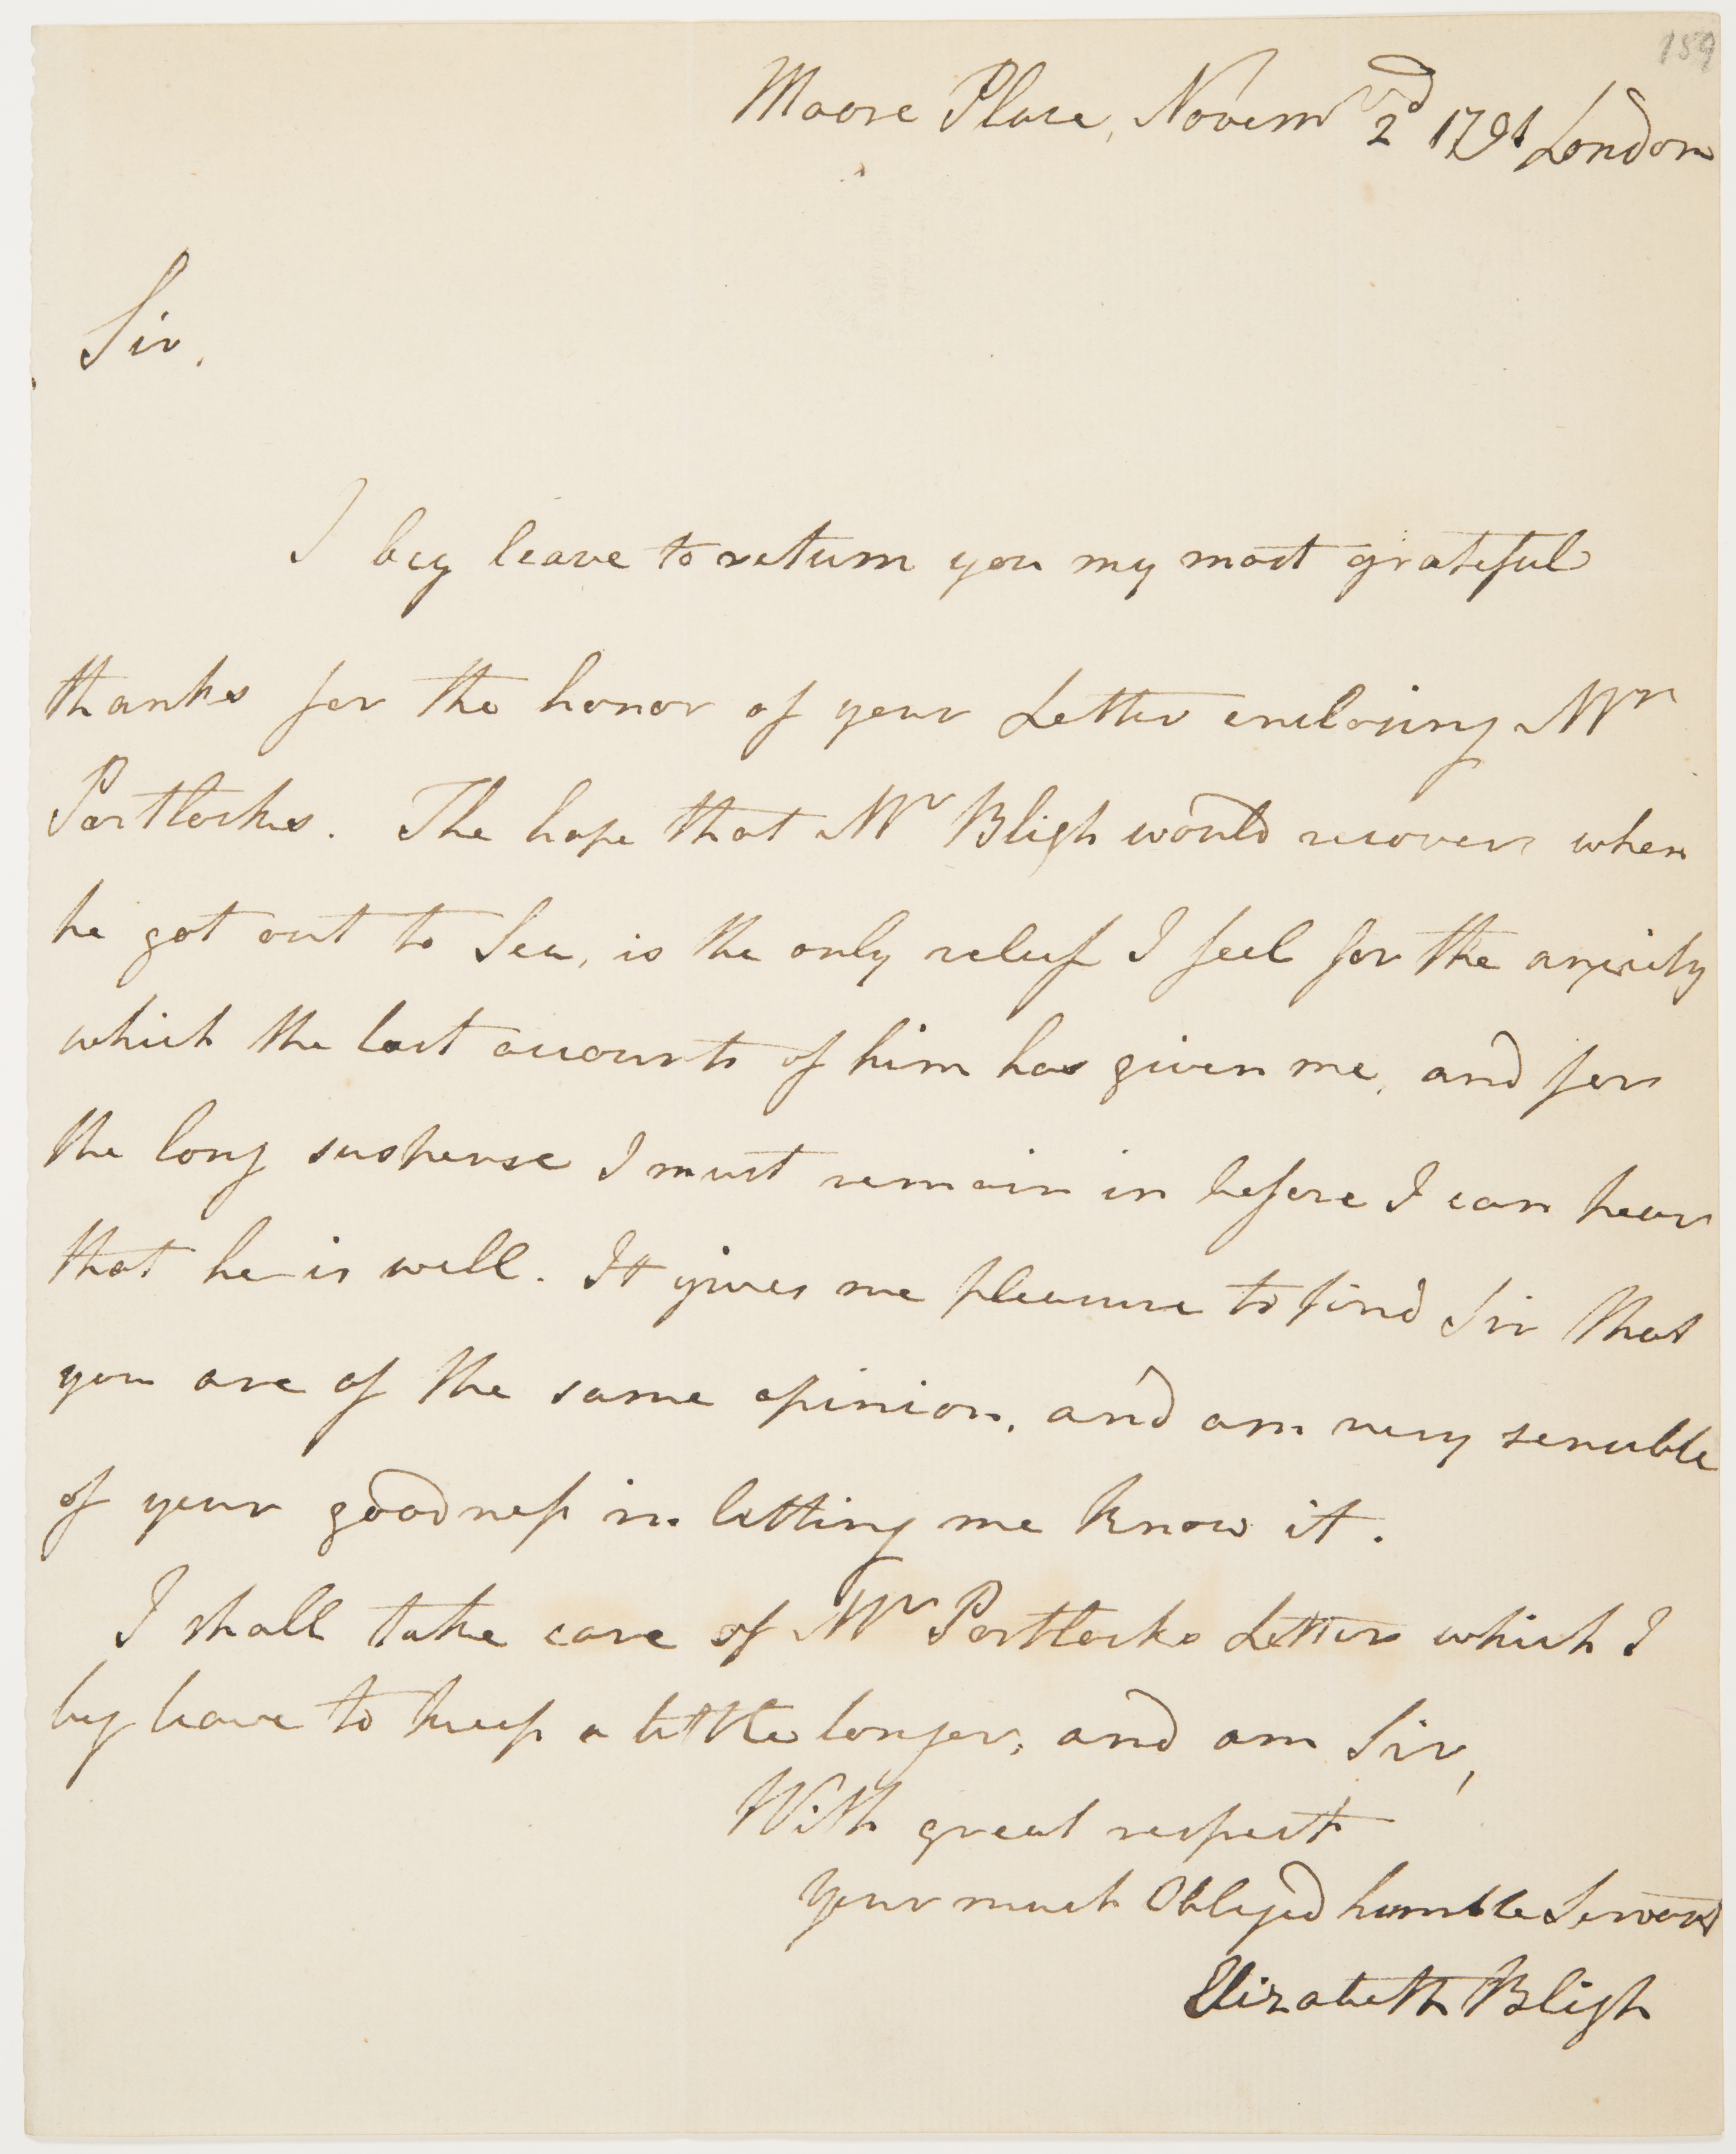 159
Moore Place, Novemr 2d 1791 London
Sir,
I beg leave to return you my most grateful
thanks for the honor of your Letter enclosing Mr
Portlocks. The hope that Mr Bligh would recover when
he got out to Sea, is the only relief I feel for the anxiety
which the last accounts of him has given me, and for
the long suspense I must remain in before I can hear
that he is well. It gives me pleasure to find Sir that
you are of the same opinion, and am very sensible
of your goodness in letting me know it.
I shall take care of Mr Portlocks Letters which I
beg leave to keep a little longer, and am Sir,
With great respect
Your much Obliged humble Servant
Elizabeth Bligh